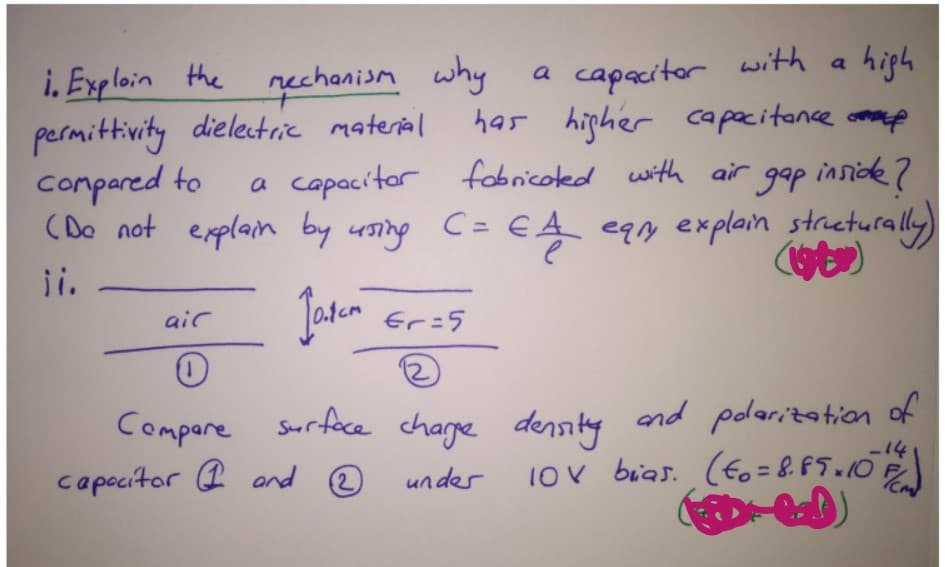 i. Explain the mechanism why a capacitor with a high
permittivity dielectric material has higher capacitance
compared to a capacitor fabricated with air gap inside?
(Do not explain by using C = ϵ A/l eqn, explain structurally)
ii.
air 0.1cm ϵr=5
① ②
Compare surface charge density and polarization of
capacitor ① and ② under 10 V bias. (ϵ0 = 8.85 × 10^-14 F/cm)